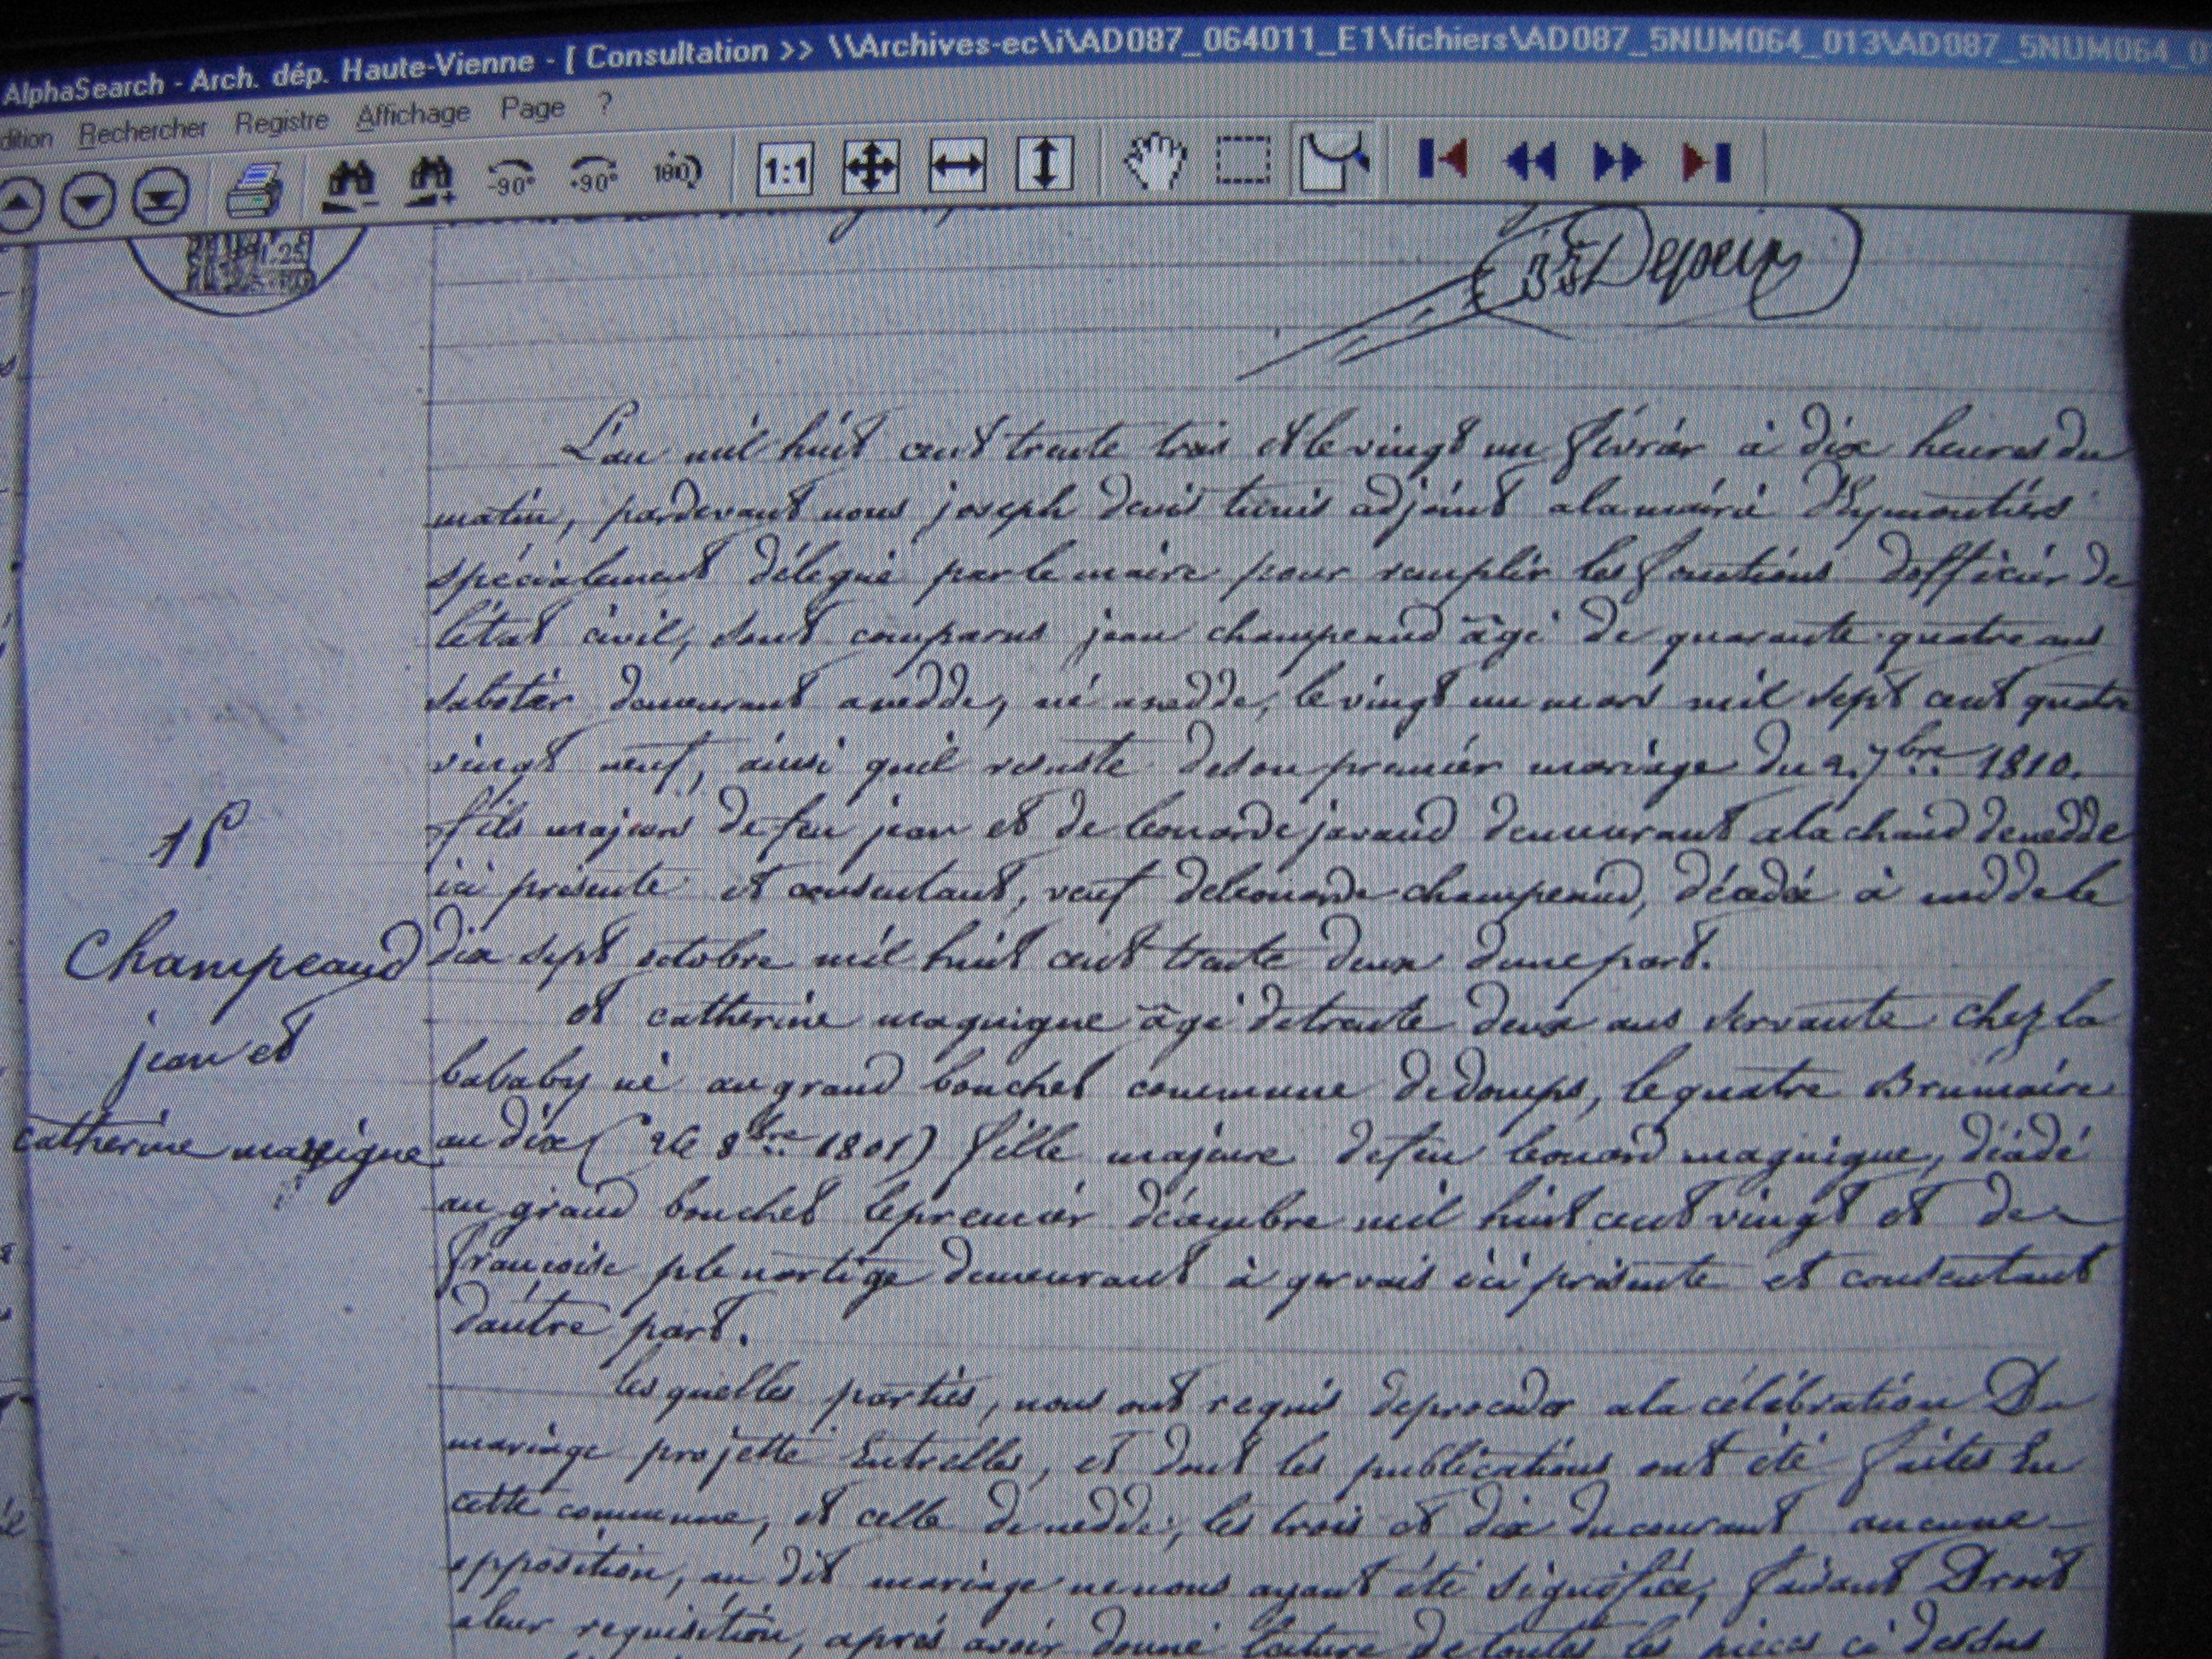 AlphaSearch - Arch. dép. Haute-Vienne - [ Consultation >> \\Archives-ec\i\AD087_064011_E1\fichiers\AD087_5NUM064_013\AD087_5NUM064_0
dition Rechercher Registre Affichage Page ?
-90° +90° 180 1:1
1.25
L'an mil huit cent trente trois et le vingt un février à dix heures du
matin, pardevant nous joseph denis adjoint a la mairie d'Eymoutiers
spécialement délégué par le maire pour remplir les fonctions d'officier de
l'état civil, sont comparus jean champeaud âgé de quarante quatre ans
sabotier demeurant a nedde, né a nedde, le vingt un mars mil sept cent quatre
vingt neuf, ainsi quil resulte de son premier mariage du 2. 7bre 1810.
fils majeur de feu jean et de leonarde javaud demeurant a la chaud de nedde
ici présente et consentant, veuf de leonarde champeaud, décédée à nedde le
dix sept octobre mil huit cent trente deux d'une part.
et catherine maguigne âgé de trente deux ans servante chez la
bababy né au grand bouchet commune de domps, le quatre Brumaire
an dix (26 8bre 1801) fille majeure de feu leonard maguigne, décédé
au grand bouchet le premier décembre mil huit cent vingt et de
françoise plenartige demeurant à gervais ici présente et consentant
d'autre part.
les quelles parties, nous ont requis de proceder a la célébration Du
mariage projetté Entr'elles, et dont les publications ont été faites En
cette commune, et celle de nedde, les trois et dix du courant aucune
opposition, au dit mariage ne nous ayant été signifiée, faisant Droit
a leur requisition, après avoir donné lecture de toutes les pièces ci dessus
Champeaud
jean et
catherine